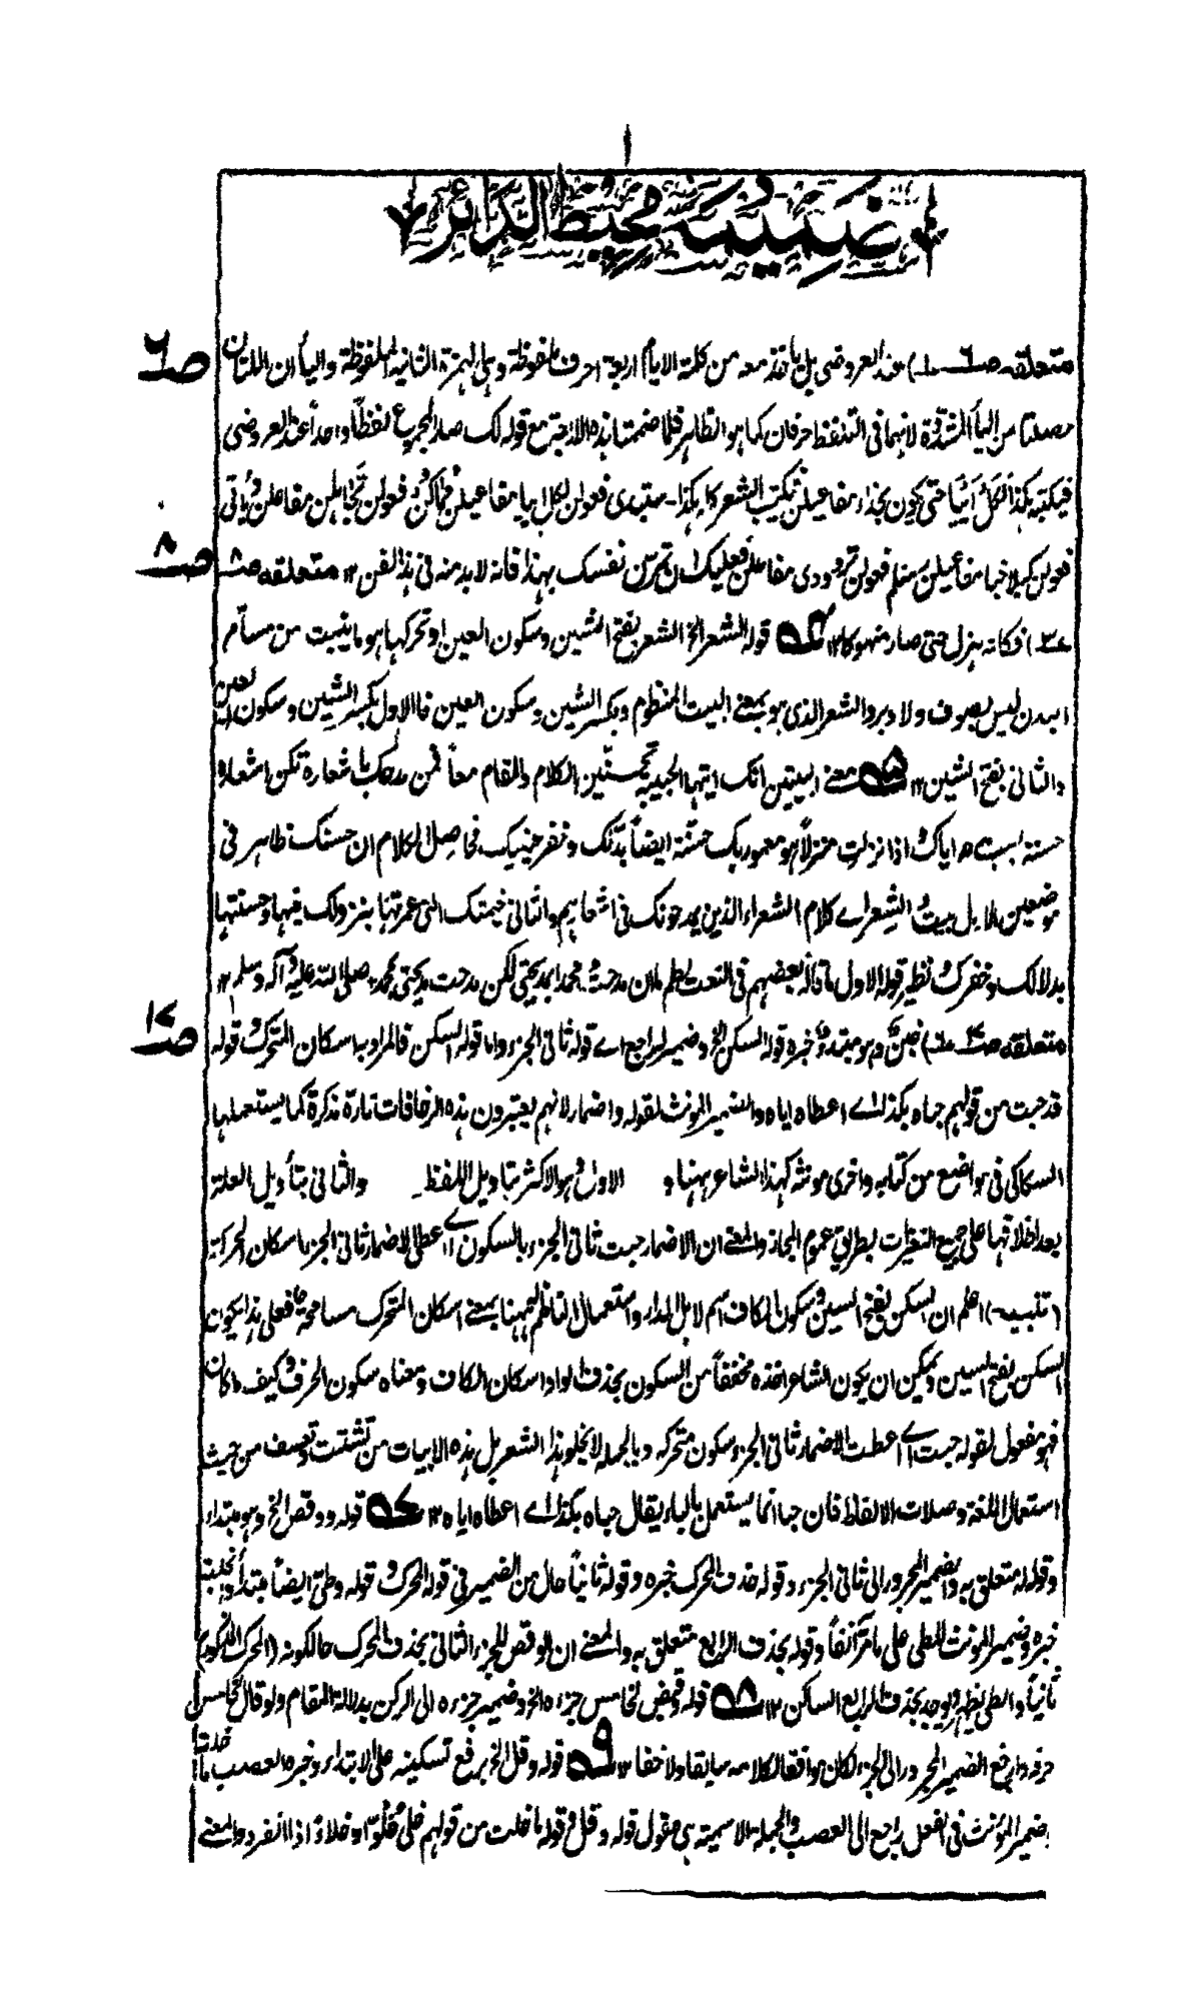 ا
ضميمة محيط الدائرة
متعلقه ص٦ عند العروضى بل يأخذ معه من كلمة الايام اربعة احرف ملفوظة وهى الهمزة الثانية الملفوظة واليأان اللتان
ص٦
حصلتا من اليأ المشددة لانهما فى التلفظ حرفان كما هو الظاهر فلما ضمت هذه الاربع مع قوله لك صار المجموع لفظا واحدا عند العروضى
فيكتبه هكذا حتى يكون بحذاء مفاعيلن يكتب الشعر كله هكذا ستبدى فعولن لكل ايا مفاعيلن فعولن مفاعلن ويأتى
فعولن كبلاخبا مفاعيلن فعولن تزودى مفاعلن فعليك ان تمرن نفسك بهذا فانه لابد منه فى هذا الفن ١٢ متعلقه ص٨
ص٨
فكانه هزل حتى صار منهوكا ١٢ قوله الشعر الخ الشعر بفتح الشين وسكون العين او تحركها هو ما ينبت من مسام
البدن ليس بصوف ولا وبر والشعر الذى هو بمعنى البيت المنظوم وبكسر الشين وسكون العين فالاول بكسر الشين وسكون العين
والثانى بفتح الشين ١٢ معنى البيتين انك ايتها الحبيبة تحسنين الكلام والمقام معا فمن مدحك باشعاره تكن اشعاره
حسنة بسبب اياك اذا نزلت منزلا هو معمور بك حسنه ايضا فحاصل الكلام ان حسنك ظاهر فى
موضعين الاول بيت الشعر اى كلام الشعراء الذين يمدحونك فى اشعارهم والثانى خيمتك التى عمرتها بنزولك فيها وحسنتها
بدلالك وخفرك نظير قوله الاول ما قاله بعضهم فى النعت ما ان مدحت محمدا بمديحتى لكن مدحت مديحتى بمحمد صلى الله عليه وآله وسلم ١٢
متعلقه ص١٢ وهو مبتدأ خبره قوله السكن الخ وضمير له راجع اى قوله ثانى الجزء واما قوله السكن فالمراد به اسكان المتحرك قوله
ص١٢
قد حبت من قولهم حباه بكذا اى اعطاه اياه والضمير المونث لقوله واضمار لانهم يعتبرون هذه الزحافات تارة مذكرة كما يستعملها
السكاكى فى مواضع من كتابه واخرى مونثة كهذا الشاعر ههنا و الاول هو الاكثر بتاويل اللفظ والثانى بتأويل العلة
بعد اطلاقها على جميع التغيرات بطريق عموم المجاز والمعنى ان الاضمار حبت ثانى الجزء بالسكون اى اعطى الاضمار ثانى الجزء اسكان الحركة
(تنبيه) اعلم ان السكن بفتح السين وسكون الكاف اسم لاهل الدار واستعمال الناظم ههنا بمعنى اسكان المتحرك مسامحة فعلى هذا يكون
السكن بفتح السين ويمكن ان يكون الشاعر اخذه مخففا من السكون بحذف الواو اسكان الكاف ومعناه سكون الحرف وكيف ما كان
فهو مفعول لقوله حبت اى اعطت الاضمار ثانى الجزء سكون متحركه وبالجملة لا يخلو هذا الشعر بل هذه الابيات من تشتت وتعسف من حيث
استعمال اللغة وصلات الالفاظ فان حبا انما يستعمل بالباء يقال حباه بكذا اى اعطاه اياه ١٢ قوله ووقص الخ وهو مبتداء
وقوله له متعلق به والضمير المجرور الى ثانى الجزء وقوله حذف المحرك خبره وقوله ثانيا حال من الضمير فى قوله المحرك وقوله وطى ايضا مبتدأ
خبره وضمير المونث للطى على ما مر آنفا وقوله بحذف الرابع متعلق به والمعنى ان الوقص للجزء الثانى بحذف المحرك حال كونه (المحرك المذكور)
ثانيا والطى يظهر ويوجد بحذف الرابع الساكن ١٢ قوله وقبض لخامس جزءه الخ وضمير جزءه الى الركن بدلالة المقام ولو قال خامس
حرفه وارجع الضمير المجرور الى الجزء لكان موافقا لكلامه سابقا ولاحقا ١٢ قوله وقل الخ برفع تسكينه على الابتداء وخبره العصب ما خلت
وضمير المؤنث فى الفعل راجع الى العصب والجملة الاسمية هى مقول قوله وقل وقوله ما خلت من قولهم خلى خلوا وخلاء اذا انفرد والمعنى